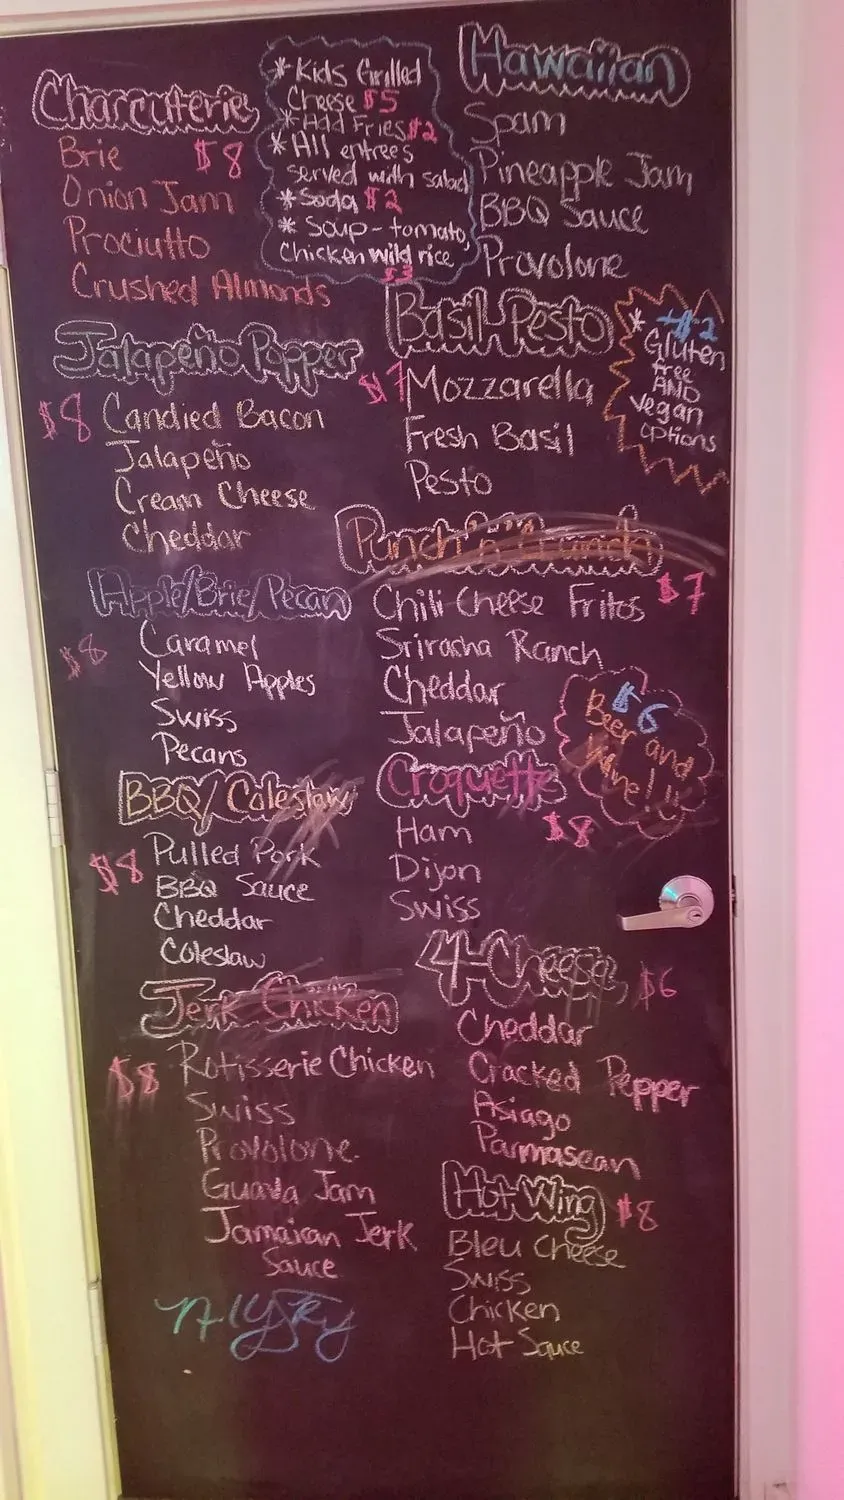 Charcuterie
Brie $8
Onion Jam
Prociutto
Crushed Almonds
* Kids Grilled
Cheese $5
* Add Fries $2
* All entrees
served with salad
* Soda $2
* Soup - tomato,
Chicken wild rice
$3
Hawaiian
Spam
Pineapple Jam
BBQ Sauce
Provolone
Jalapeño Popper
$8 Candied Bacon
Jalapeño
Cream Cheese
Cheddar
Basil Pesto
$7 Mozzarella
Fresh Basil
Pesto
+$2
* Gluten
free
AND
vegan
options
Apple/Brie/Pecan
$8 Caramel
Yellow Apples
Swiss
Pecans
Punch 'n' Crunch
Chili Cheese Fritos $7
Sriracha Ranch
Cheddar
Jalapeño
$6
Beer and
Wine!
BBQ/Coleslaw
$8 Pulled Pork
BBQ Sauce
Cheddar
Coleslaw
Croquette
Ham $8
Dijon
Swiss
Jerk Chicken
$8 Rotisserie Chicken
Swiss
Provolone
Guava Jam
Jamaican Jerk
Sauce
4-Cheese $6
Cheddar
Cracked Pepper
Asiago
Parmasean
Hot Wing $8
Bleu Cheese
Swiss
Chicken
Hot Sauce